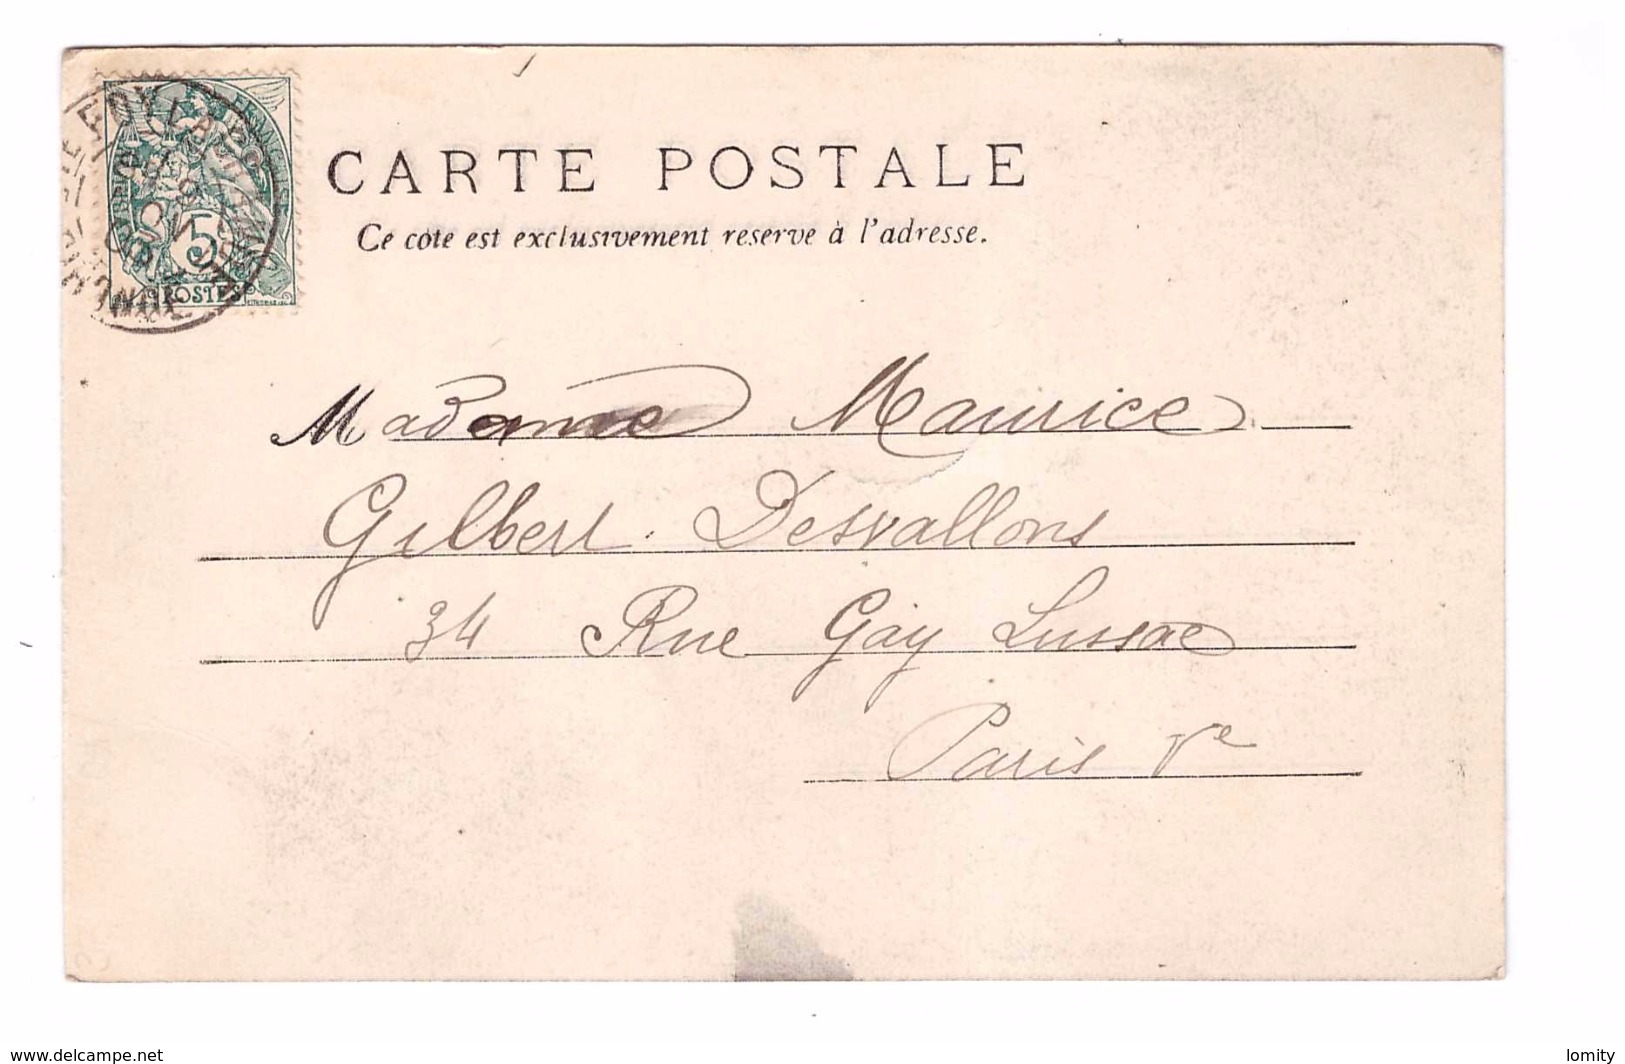 CARTE POSTALE
Ce côté est exclusivement réservé à l'adresse.
5
POSTES
Madame Maurice
Gilbert. Desvallons
34 Rue Gay Lussac
Paris Ve
www.delcampe.net
lomity